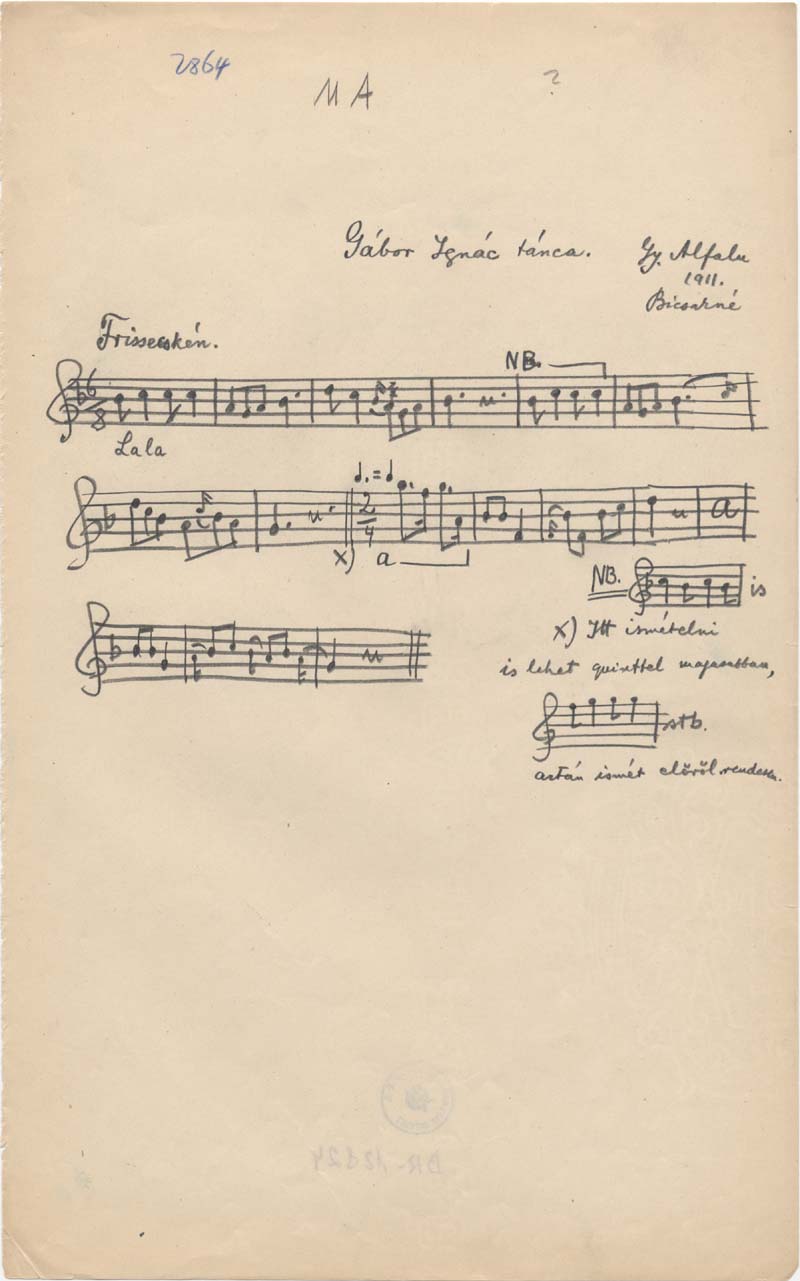 2864
M A ?
Gábor Ignác tánca. Gy. Alfalu
1911.
Bicsakné
Frissecskén.
NB.
6
8
Lala
♩. = ♩
2
4
x) a
a
NB. is
x) Itt ismételni
is lehet quinttel magasabban,
stb.
aztán ismét előről rendesen.
BR-12124